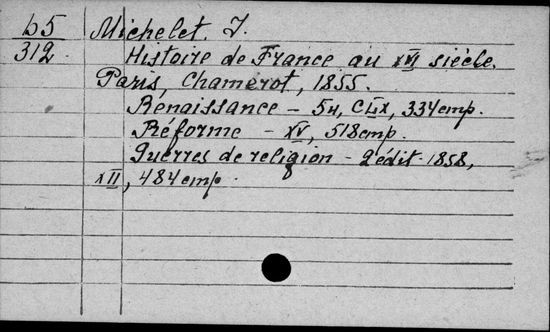 65 Michelet, J.
312 Histoire de France au XVI siècle.
Paris, Chamerot, 1855.
Renaissance – 5н, CLIX, 334 стр.
Réforme – XV, 518 стр.
Guerres de religion – 2 édit. 1858,
XII, 484 стр.